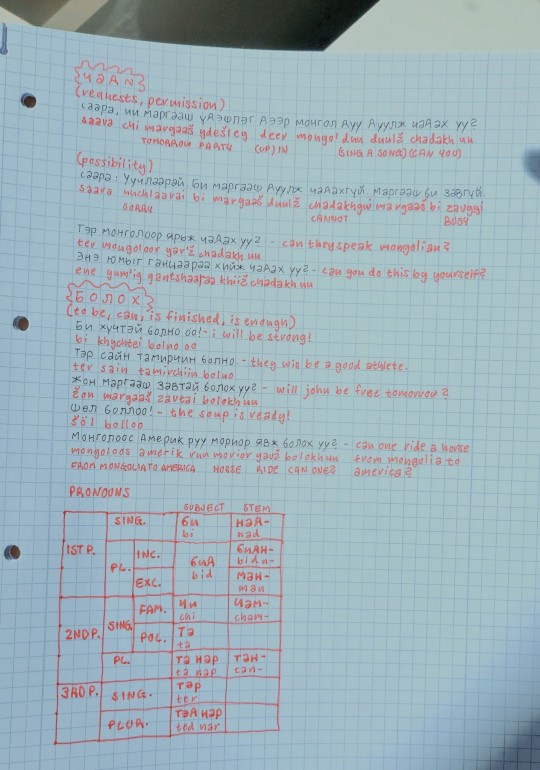 ЧАДАХ
(requests, permission)
Саара, чи маргааш үдэшлэг дээр монгол дуу дуулж чадах уу?
saara chi margaaš ydešleg deer mongol duu duulž chadakh uu
TOMORROW PARTY (UP) IN (SING A SONG) (CAN YOU)
(possibility)
Саара: Уучлаарай, би маргааш дуулж чадахгүй. Маргааш би завгүй.
saara uuchlaarai bi margaaš duulž chadakhgyi margaaš bi zavgyi
SORRY CANNOT BUSY
Тэр монголоор ярьж чадах уу? - can they speak mongolian?
ter mongoloor yar'ž chadakh uu
Энэ юмыг ганцаараа хийж чадах уу? - can you do this by yourself?
ene yum'ig gantshaaraa khiiž chadakh uu
БОЛОХ
(to be, can, is finished, is enough)
Би хүчтэй болно оо! - i will be strong!
bi khychtei bolno oo
Тэр сайн тамирчин болно - they will be a good athlete.
ter sain tamirchiin bolno
Жон маргааш завтай болох уу? - will john be free tomorrow?
žon margaaš zavtai bolokh uu
Шөл боллоо! - the soup is ready!
šöl bolloo
Монголоос Америк руу мориор явж болох уу? - can one ride a horse
mongoloos amerik ruu morior yavž bolokh uu from mongolia to
FROM MONGOLIA TO AMERICA HORSE RIDE CAN ONE? america?
PRONOUNS
SUBJECT STEM
1ST P. SING. би над-
bi nad
PL. INC. бид бидн-
bid bidn-
EXC. ман-
man
2ND P. SING. FAM. чи чам-
chi cham-
POL. та
ta
PL. та нар тан-
ta nar tan-
3RD P. SING. тэр
ter
PLUR. тэд нар
ted nar